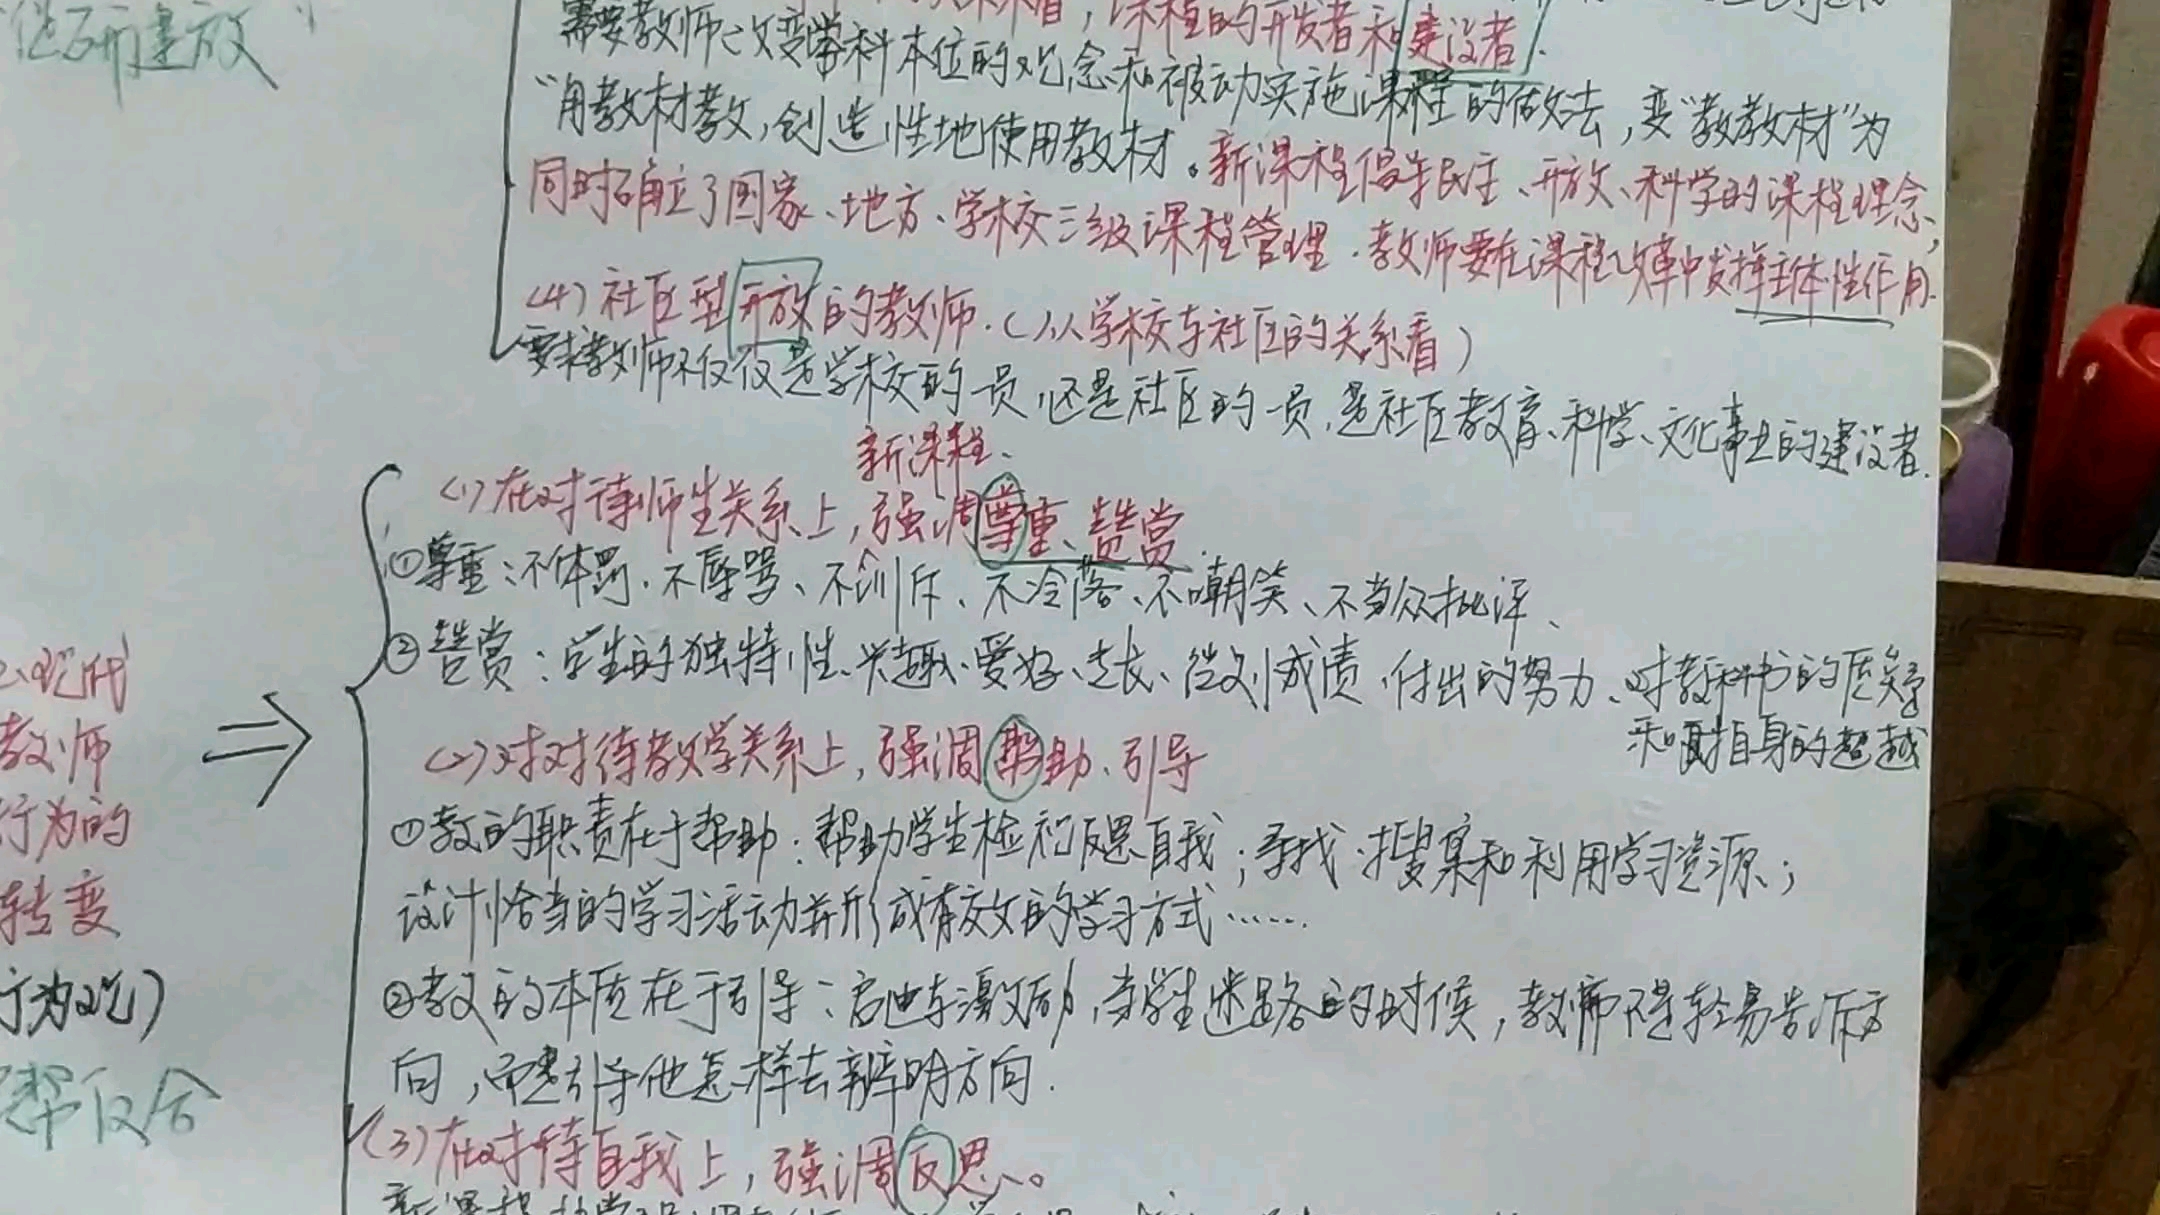 促研建放"
课程的开发者和建设者.
需要教师改变学科本位的观念和被动实施课程的做法,变"教教材"为
"用教材教,创造性地使用教材。新课程倡导民主、开放、科学的课程理念,
同时确立了国家、地方、学校三级课程管理.教师要在课程改革中发挥主体性作用.
(4)社区型开放的教师.(从学校与社区的关系看)
要求教师不仅仅是学校的一员,还是社区的一员,是社区教育、科学、文化事业的建设者.
新课程、
(1)在对待师生关系上,强调尊重、赞赏.
①尊重:不体罚、不辱骂、不训斥、不冷落、不嘲笑、不当众批评、
②赞赏:学生的独特性、兴趣、爱好、专长、微列成绩、付出的努力、对教科书的质疑
和自身的超越
(2)对对待教学关系上,强调帮助、引导
①教的职责在于帮助:帮助学生检视反思自我;寻找、搜集和利用学习资源;
设计恰当的学习活动并形成有效的学习方式……
②教的本质在于引导:启迪与激励,当学生迷路的时候,教师不是轻易告诉方
向,而是引导他怎样去辨明方向.
(3)在对待自我上,强调反思。
2、现代
教师
行为的
转变
行为观)
帮反合